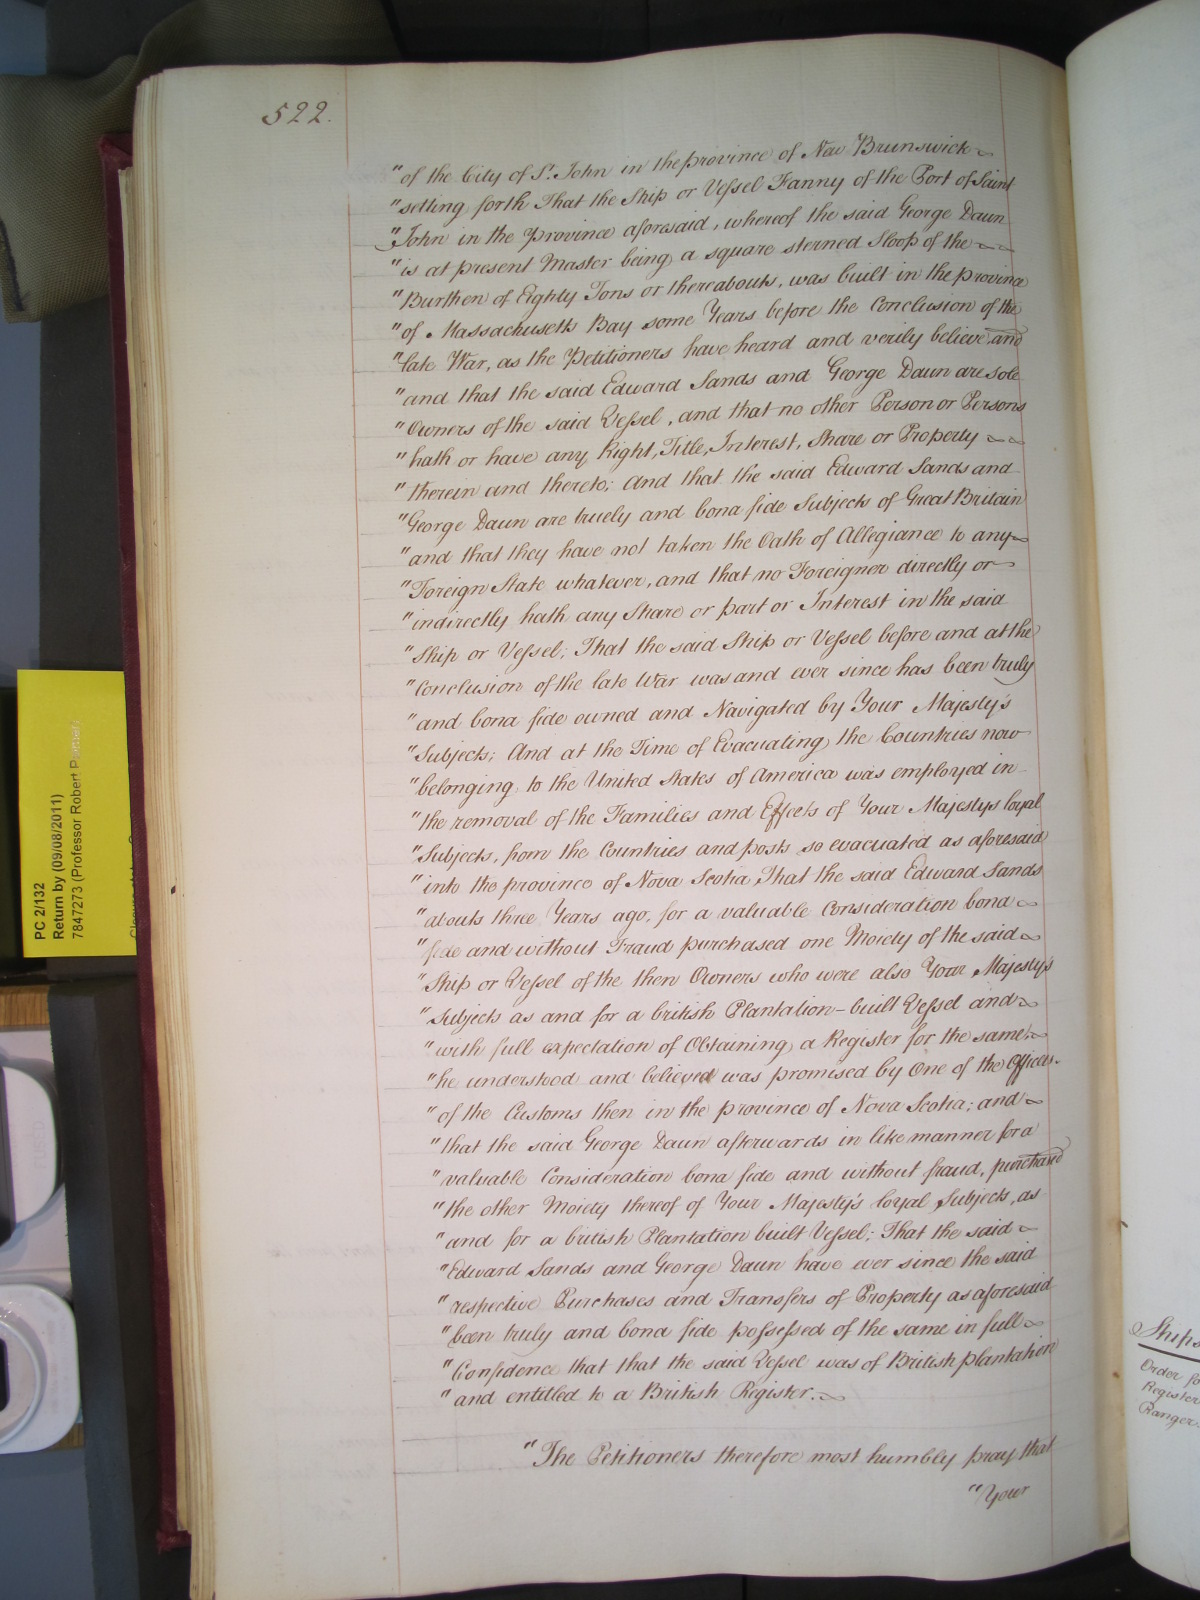 522.
"of the City of St. John in the province of New Brunswick
"setting forth That the Ship or Vessel Fanny of the Port of Saint
"John in the Province aforesaid, whereof the said George Daun
"is at present Master being a square sterned Sloop of the
"Burthen of Eighty Tons or thereabouts, was built in the province
"of Massachusetts Bay some Years before the Conclusion of the
"late War, as the Petitioners have heard and verily believe and
"and that the said Edward Sands and George Daun are sole
"Owners of the said Vessel, and that no other Person or Persons
"hath or have any Right, Title, Interest, Share or Property
"therein and thereto; And that the said Edward Sands and
"George Daun are truely and bona fide Subjects of Great Britain
"and that they have not taken the Oath of Allegiance to any
"Foreign State whatever, and that no Foreigner directly or
"indirectly hath any Share or part or Interest in the said
"Ship or Vessel; That the said Ship or Vessel before and at the
"Conclusion of the late War was and ever since has been truly
"and bona fide owned and Navigated by Your Majesty's
"Subjects; And at the Time of Evacuating the Countries now
"belonging to the United States of America was employed in
"the removal of the Families and Effects of Your Majestys loyal
"Subjects, from the Countries and posts so evacuated as aforesaid
"into the province of Nova Scotia That the said Edward Sands
"abouts three Years ago, for a valuable Consideration bona
"fide and without Fraud purchased one Moiety of the said
"Ship or Vessel of the then Owners who were also Your Majesty's
"Subjects as and for a british Plantation-built Vessel and
"with full expectation of Obtaining a Register for the same,
"he understood and believed was promised by One of the Officers
"of the Customs then in the province of Nova Scotia; and
"that the said George Daun afterwards in like manner for a
"valuable Consideration bona fide and without fraud, purchased
"the other Moiety thereof of Your Majesty's loyal Subjects, as
"and for a british Plantation built Vessel; That the said
"Edward Sands and George Daun have ever since the said
"respective Purchases and Transfers of Property as aforesaid
"been truly and bona fide possessed of the same in full
"Confidence that that the said Vessel was of British plantation
"and entitled to a British Register.
"The Petitioners therefore most humbly pray that
"Your
PC 2/132
Return by (09/08/2011)
7847273 (Professor Robert
Ships
Order fo
Register
Ranger.